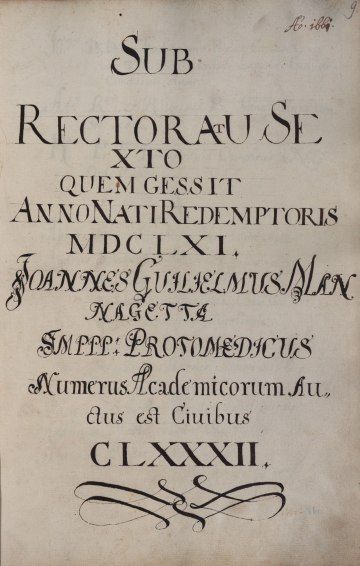 9
Ao. 1661
SUB
RECTORATU SE
XTO
QUEM GESSIT
ANNO NATI REDEMPTORIS
MDCLXI.
JOANNES GUILIELMUS MAN
NAGETTA
IMPPP: PROTOMEDICUS
Numerus Academicorum Au„
ctus est Civibus
CLXXXII.